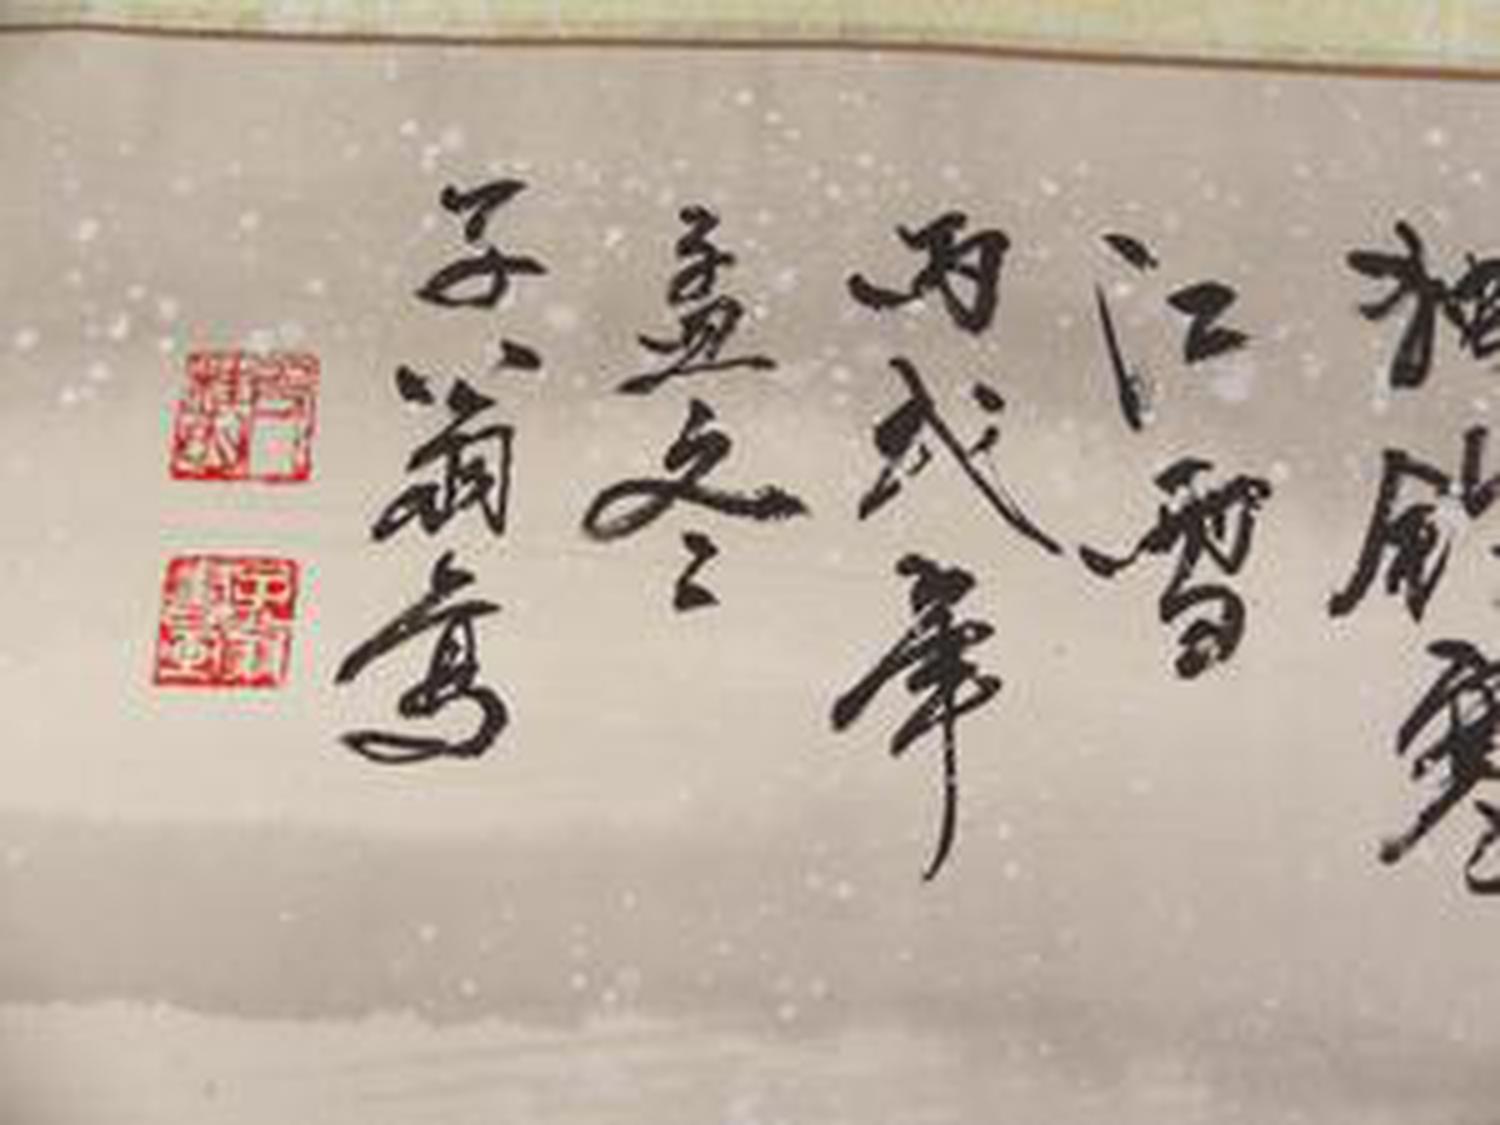 独钓寒
江雪
丙戌年
孟冬
子翁写